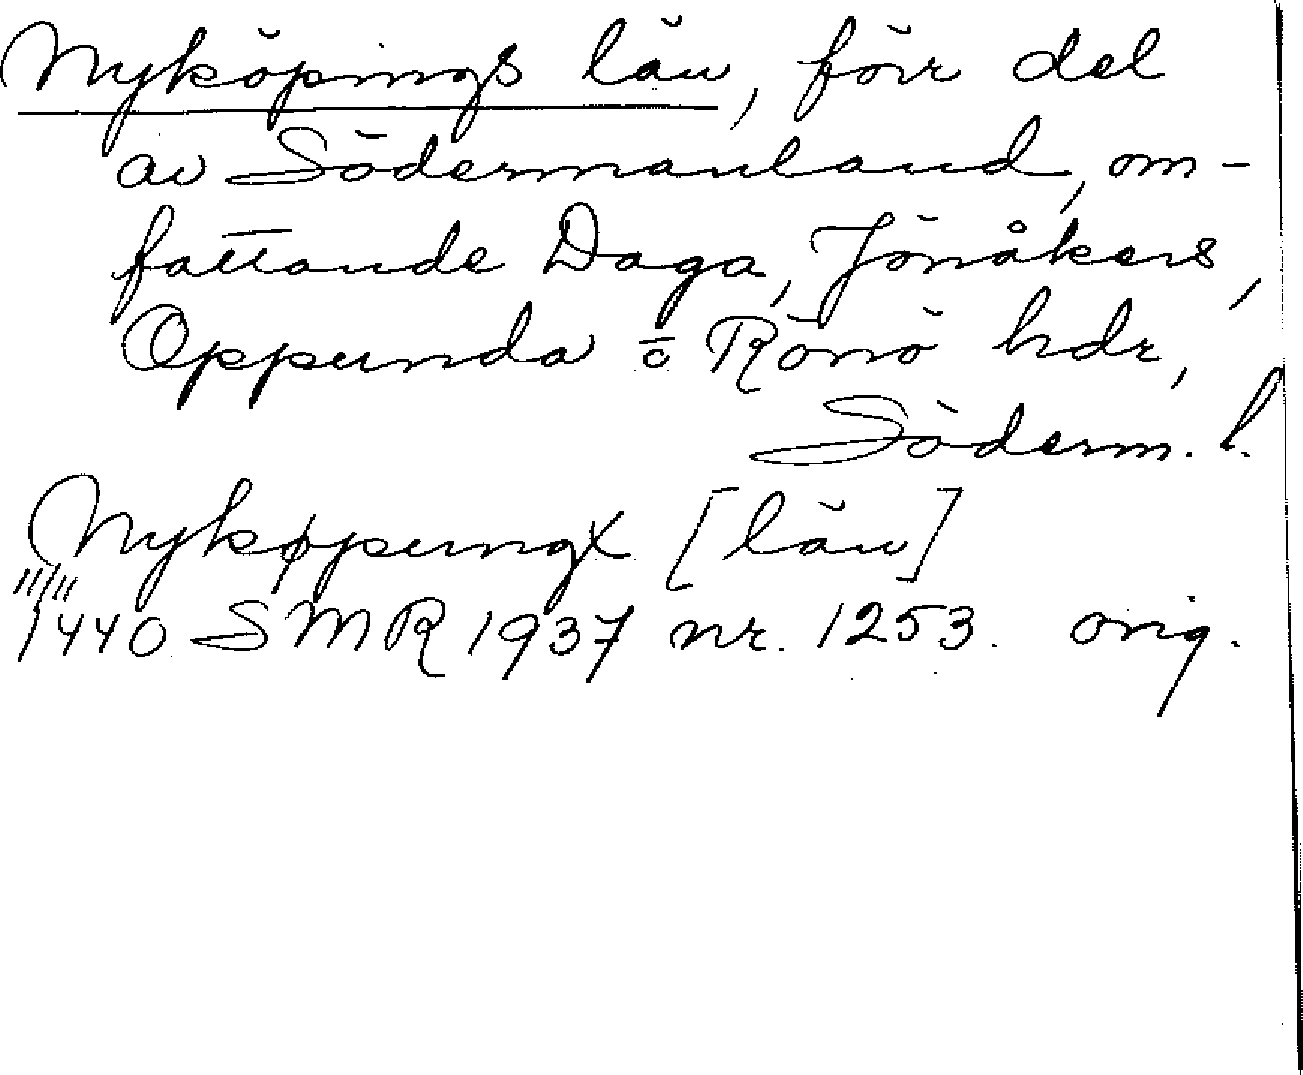 Nyköpings län, förr del
av Södermanland, om-
fattande Daga, Jönåkers,
Oppunda o Rönö hdr,
Söderm. l.
Nykøpungx [län]
11/11
1440 SMR 1937 nr. 1253. orig.